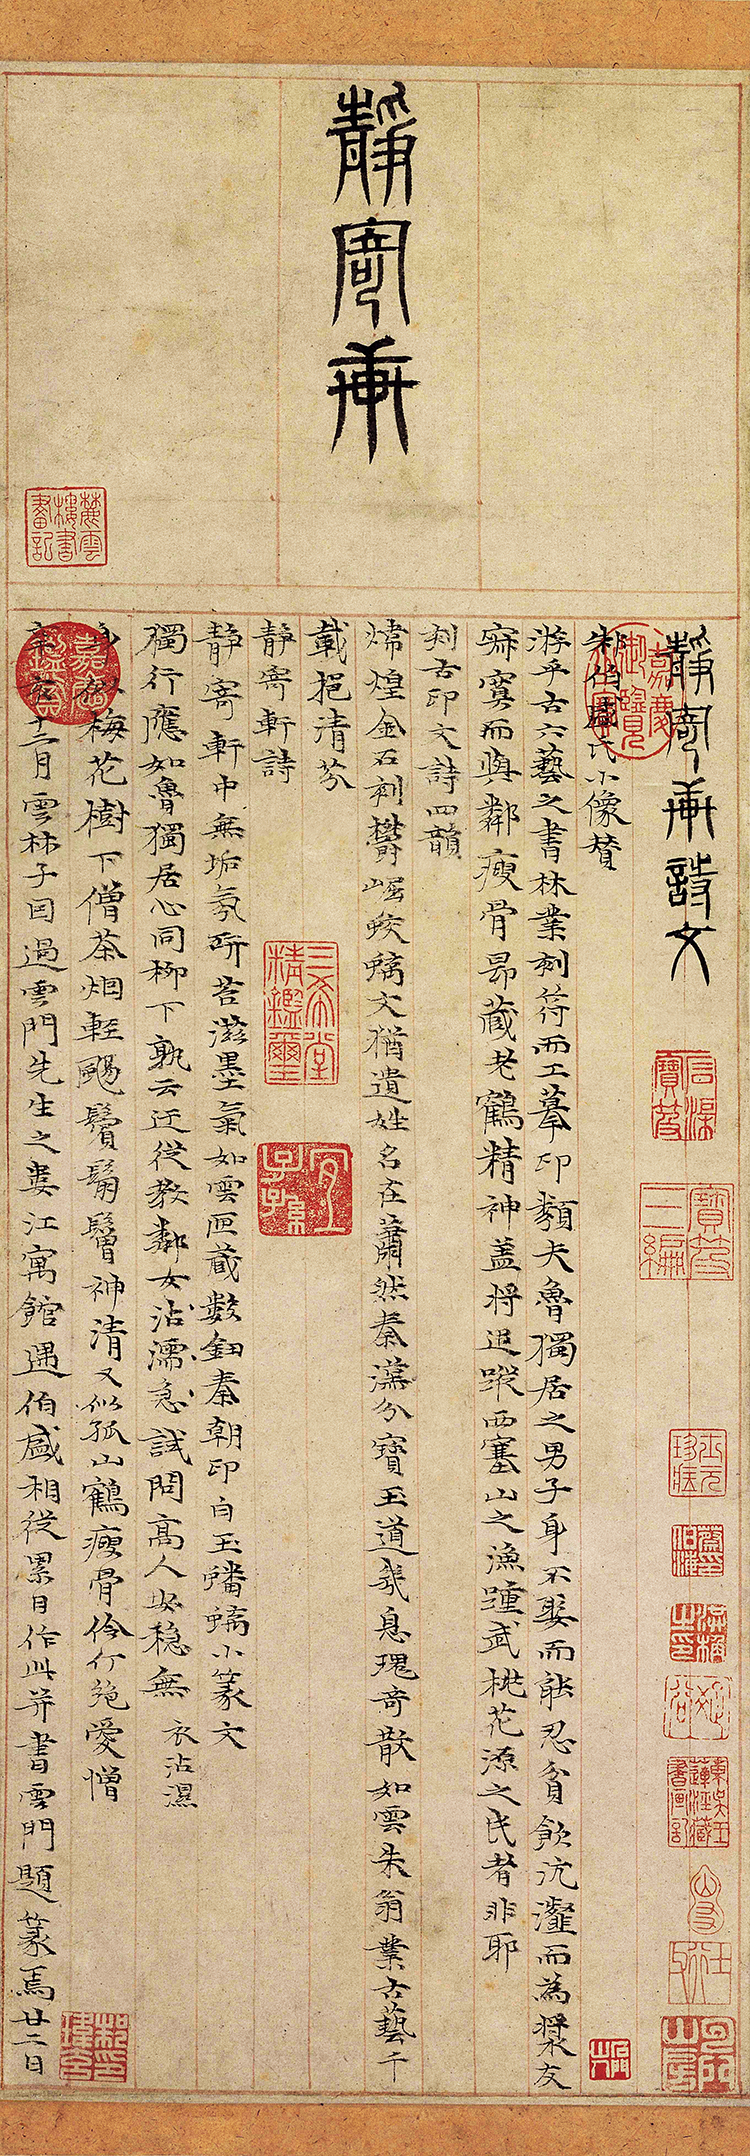 靜寄軒
靜寄軒詩文
朱伯盛氏小像贊
游乎古六藝之書林業刻符而工摹印類夫魯獨居之男子身不娶而能忍貧飲沆瀣而為漿友
寂寞而與鄰瘦骨昂藏老鶴精神蓋將追蹤西塞山之漁踵武桃花源之民者非耶
刻古印文詩四韻
煒煌金石刻欝崛蛟螭文猶遺姓名在蕭然秦漢分寶玉道幾息瑰奇散如雲朱翁業古藝千
載挹清芬
靜寄軒詩
靜寄軒中無垢氛研苔滋墨氣如雲匣藏數鈕秦朝印白玉蟠螭小篆文
獨行應如魯獨居心同柳下孰云迂從教鄰女沾濡急試問高人安穩無 衣沾濕
身似梅花樹下僧茶烟輕颺鬢鬅鬙神清又似孤山鶴瘦骨伶仃絕愛憎
辛亥十二月雲林子因過雲門先生之婁江寓館遇伯盛相從累日作此并書雲門題篆焉廿二日
嘉慶御覽之寶
嘉慶鑑賞
三希堂精鑑璽
宜子孫
寶笈三編
麓雲樓書畫記